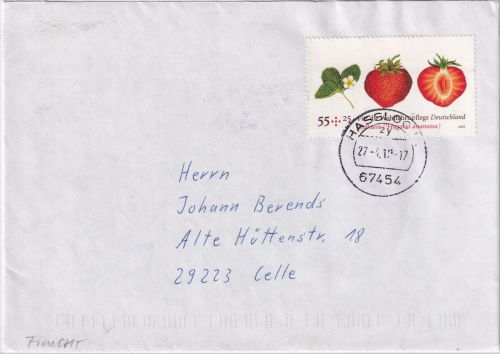 55+25 Für die Wohlfahrtspflege Deutschland
(Fragaria ananassa)
HASSLOCH
27-
-17
67454
Herrn
Johann Berends
Alte Hüttenstr. 18
29223 Celle
FRUCHT